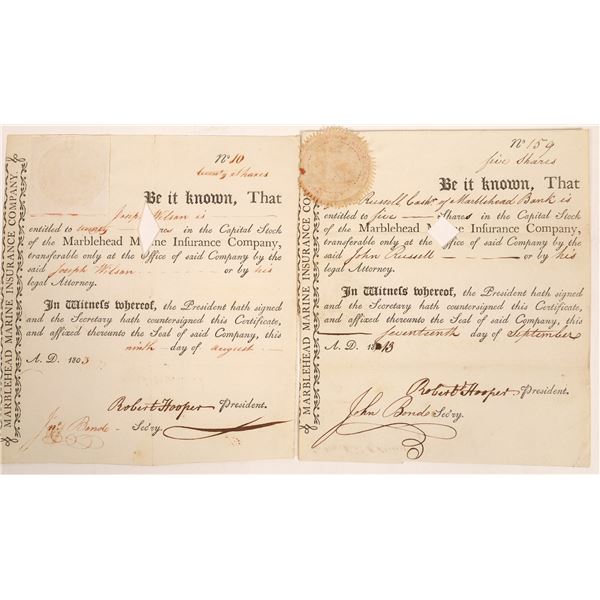 MARBLEHEAD MARINE INSURANCE COMPANY.
No 10
twenty Shares
Be it known, That
Joseph Wilson is
entitled to twenty Shares in the Capital Stock
of the Marblehead Marine Insurance Company,
transferable only at the Office of said Company by the
said Joseph Wilson or by his
legal Attorney.
In Witness whereof, the President hath signed
and the Secretary hath countersigned this Certificate,
and affixed thereunto the Seal of said Company, this
ninth day of august
A. D. 1803
Robert Hooper President.
Jno Bond Sec'ry.
MARBLEHEAD MARINE INSURANCE COMPANY.
No 159
five Shares
Be it known, That
Russell Cashr of Marblehead Bank is
entitled to five Shares in the Capital Stock
of the Marblehead Marine Insurance Company,
transferable only at the Office of said Company by the
said John Russell or by his
legal Attorney.
In Witness whereof, the President hath signed
and the Secretary hath countersigned this Certificate,
and affixed thereunto the Seal of said Company, this
Seventeenth day of September
A. D. 1813
Robert Hooper President.
John Bond Sec'ry.